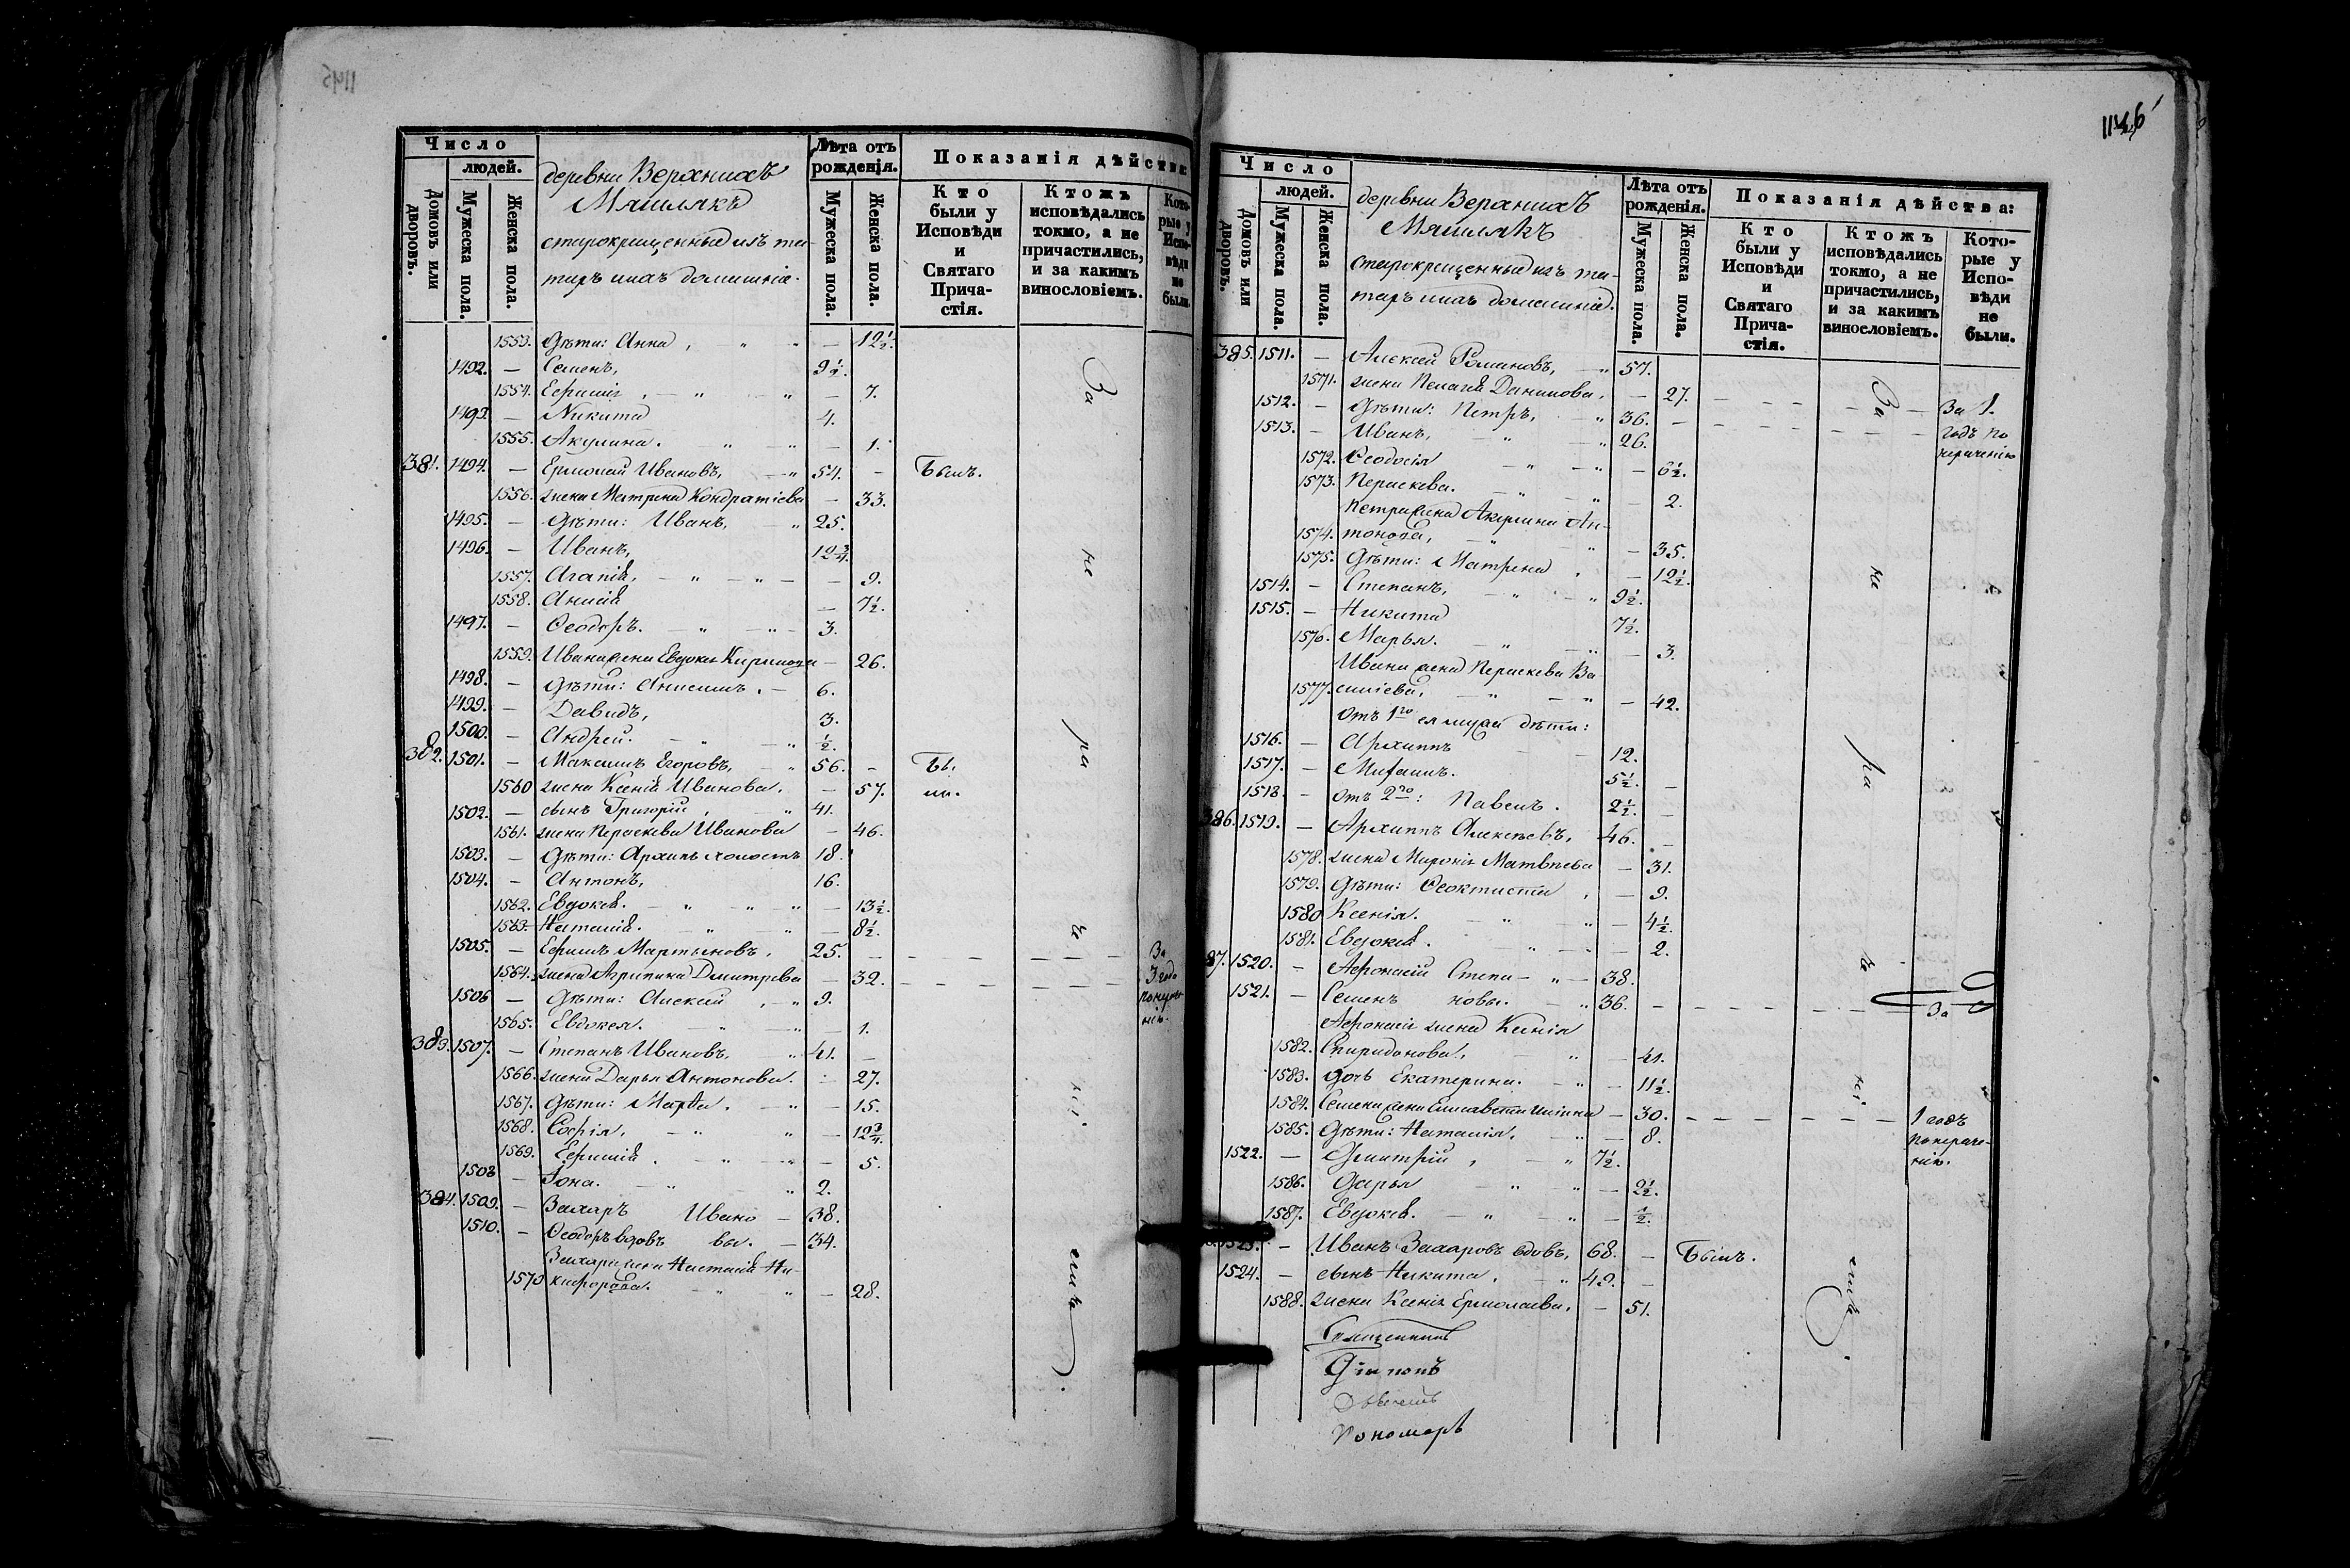 1145
Число
людей.
Домовъ или дворовъ.
Мужеска пола.
Женска пола.
деревни Верхнихъ
Машлякъ
старокрещенные изъ та-
таръ и ихъ домашніе.
Лѣта отъ рожденія.
Мужеска пола.
Женска пола.
Показанія дѣйства
Кто были у Исповѣди и Святаго Прича-стія.
Ктожъ исповѣдались токмо, а не причастились, и за какимъ винословіемъ.
Кото-рые у Испо-вѣди не были.
1553. Дѣти: Анна, — 12½.
1492. — Семенъ, 9½.
1554. Ефимія, — 7.
1493. — Никита 4.
1555. Акулина. — 1.
381. 1494. — Ермолай Ивановъ, 54. — Былъ.
1556. жена Матрена Кондратіева — 33.
1495. — Дѣти: Иванъ, 25.
1496. — Иванъ, 12¾.
1557. Агапія, — 9.
1558. Анисія — 7½.
1497. — Ѳеодоръ. 3.
1559. Ивана жена Евдокія Кирилова — 26.
1498. — Дѣти: Анисимъ. 6.
1499. — Давидъ, 3.
1500. — Андрей. ½.
382. 1501. — Максимъ Егоровъ, 56. — Бы.
1560 жена Ксенія Иванова. — 57. ли.
1502. — сынъ Григорій, 41.
1561. жена Параскева Иванова — 46.
1503. — Дѣти: Архипъ холостъ 18.
1504. — Антонъ, 16.
1562. Евдокія. — 13½.
1563. Наталія. — 8½.
1505. — Ефимъ Мартыновъ, 25. — За
1564. жена Агрипина Дмитріева — 32. 3 года
1506 — Дѣти: Алексей, 9.
1565. Евдокея. — 1.
383. 1507. — Степанъ Ивановъ, 41. —
1566. жена Дарья Антонова. — 27.
1567. Дѣти: Марѳа. — 15.
1568. Софія, — 12¾.
1569. Ефимія. — 5.
1508 — Іона. 2.
384. 1509. — Захаръ Ивано — 38.
1510. — Ѳеодоръ вдовъ вы. — 34.
Захара жена Наталія Ни-
1570 кифорова. — 28.
За не ра че ні емъ.
1146
Число
людей.
Домовъ или дворовъ.
Мужеска пола.
Женска пола.
деревни Верхнихъ
Машлякъ
старокрещенные изъ та-
таръ и ихъ домашніе.
Лѣта отъ рожденія.
Мужеска пола.
Женска пола.
Показанія дѣйства:
Кто были у Исповѣди и Святаго Прича-стія.
Ктожъ исповѣдались токмо, а не причастились, и за какимъ винословіемъ.
Кото-рые у Испо-вѣди не были.
385. 1511. — Алексей Романовъ, 57.
1571. жена Пелагея Данилова, — 27. За 1.
1512. — Дѣти: Петръ, 36. — годъ по
1513. — Иванъ, 26. нераченію
1572. Ѳеодосія — 6½.
1573. Параскева. — 2.
Петра жена Акулина Ан-
1574. тонова, — 35.
1575. Дѣти: Матрена, — 12½.
1514. — Степанъ, 9½.
1515. — Никита 7½.
1576. Марья. — 3.
Ивана жена Параскева Ва
1577. силіева, — 42.
отъ 1го ея мужа дѣти:
1516. — Архиппъ 12.
1517. — 5½. —
1518. — отъ 2го: Павелъ. 2½. —
386. 1519. — Архиппъ Алексѣевъ, 46. —
1578. жена Матвѣева — 31.
1579. Дѣти: Ѳеоктиста, — 9.
1580 Ксенія. — 4½.
1581. Евдокія. — 2.
87. 1520. — Афонасій Степа — 38.
1521. — Семенъ новы. 36. — За
Афонасія жена Ксенія
1582. Спиридонова, — 41.
1583. дочь Екатерина. — 11½.
1584. Семена жена Елисавета — 30. 1 годъ
1585. Дѣти: Наталія, — 8. по нераче-
1522. — Дмитрій, 7½. нію.
1586. Дарья — 2½.
1587. Евдокія. — ½.
1523. — Иванъ Захаровъ вдовъ, 68. — Былъ.
1524. — сынъ Никита, 49. —
1588. жена Ксенія Ермолаева, — 51.
За не ра че ні емъ.
Священникъ
Діаконъ
Дьячекъ
Пономарь